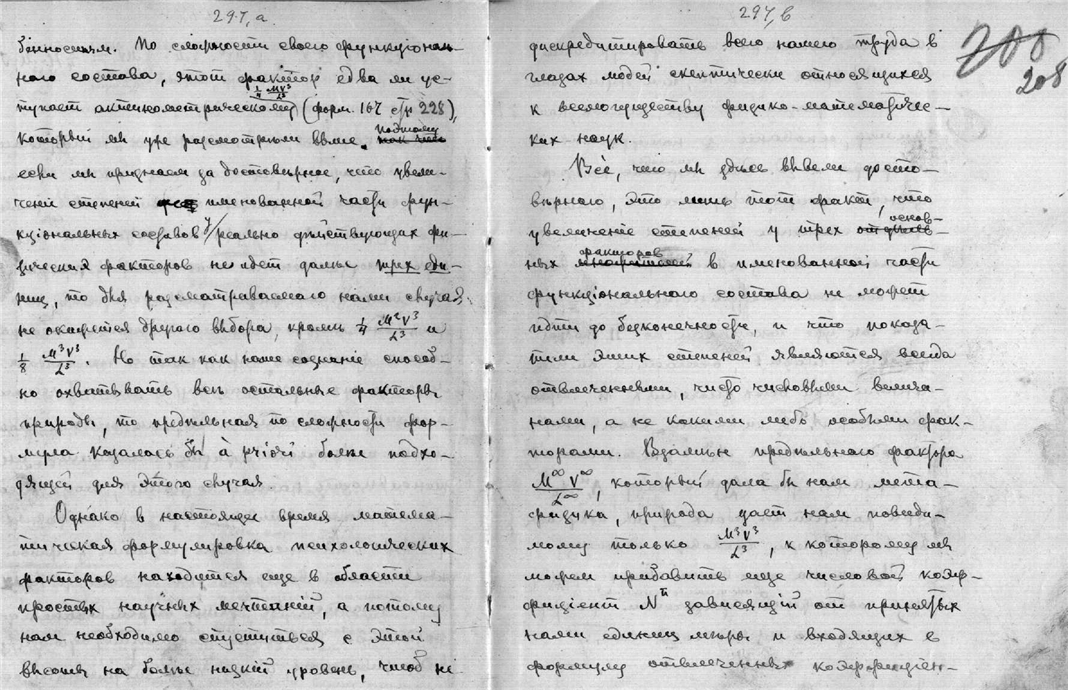 297, а.
бенностям. По сложности своего функціональ-
наго состава, этотъ факторъ едва ли ус-
тупаетъ актинометрическому 1/4 M²V³/L³ (форм. 167 стр 228),
который мы уже разсмотрѣли выше. Поэтому
если мы признаемъ за достовѣрное, что увели-
ченіе степеней именованной части функ-
кціональныхъ составовъ у реально дѣйствующихъ фи-
зическихъ факторовъ не идетъ далѣе трехъ еди-
ницъ, то для разсматриваемаго нами случая
не окажется другого выбора, кромѣ 1/4 M²V³/L³ и
1/8 M³V³/L³. Но такъ какъ наше сознаніе способ-
но охватывать всѣ остальные факторы
природы, то предѣльная по сложности фор-
мула казалась бы à priori болѣе подхо-
дящей для этого случая.
Однако въ настоящее время матема-
тическая формулировка психологическихъ
факторовъ находится еще въ области
простыхъ научныхъ мечтаній, а потому
намъ необходимо спуститься съ этой
высоты на болѣе низкій уровень, чтобъ не
297, в
200
208
дискредитировать всего нашего труда въ
глазахъ людей скептически относящихся
къ всемогуществу физико-математичес-
кихъ наукъ.
Всё, что мы здѣсь вывели досто-
вѣрнаго, это лишь тотъ фактъ, что
увеличеніе степеней у трехъ основ-
ныхъ факторовъ въ именованной части
функціональнаго состава не можетъ
идти до безконечности, и что показа-
тели этихъ степеней являются всегда
отвлеченными, чисто числовыми величи-
нами, а не какими либо особыми фак-
торами. Взамѣнъ предѣльнаго фактора
M∞V∞/L∞, который дала бы намъ мета-
физика, природа даетъ намъ повиди-
мому только M³V³/L³, къ которому мы
можемъ прибавить еще числовой коэф-
фиціентъ N зависящій отъ принятыхъ
нами единицъ мѣры и входящихъ въ
формулу отвлеченныхъ коэффиціен-